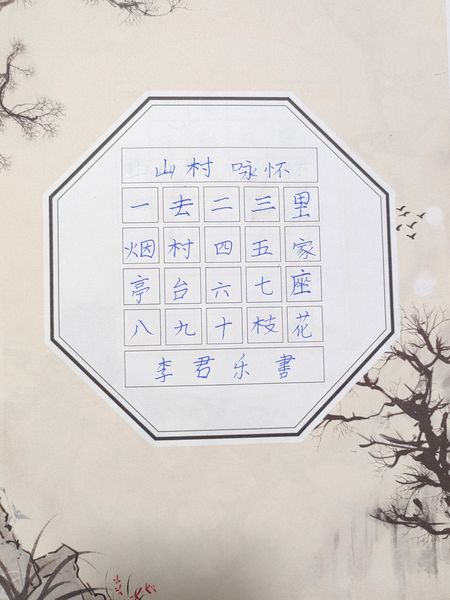 山村咏怀
一去二三里
烟村四五家
亭台六七座
八九十枝花
李君乐書